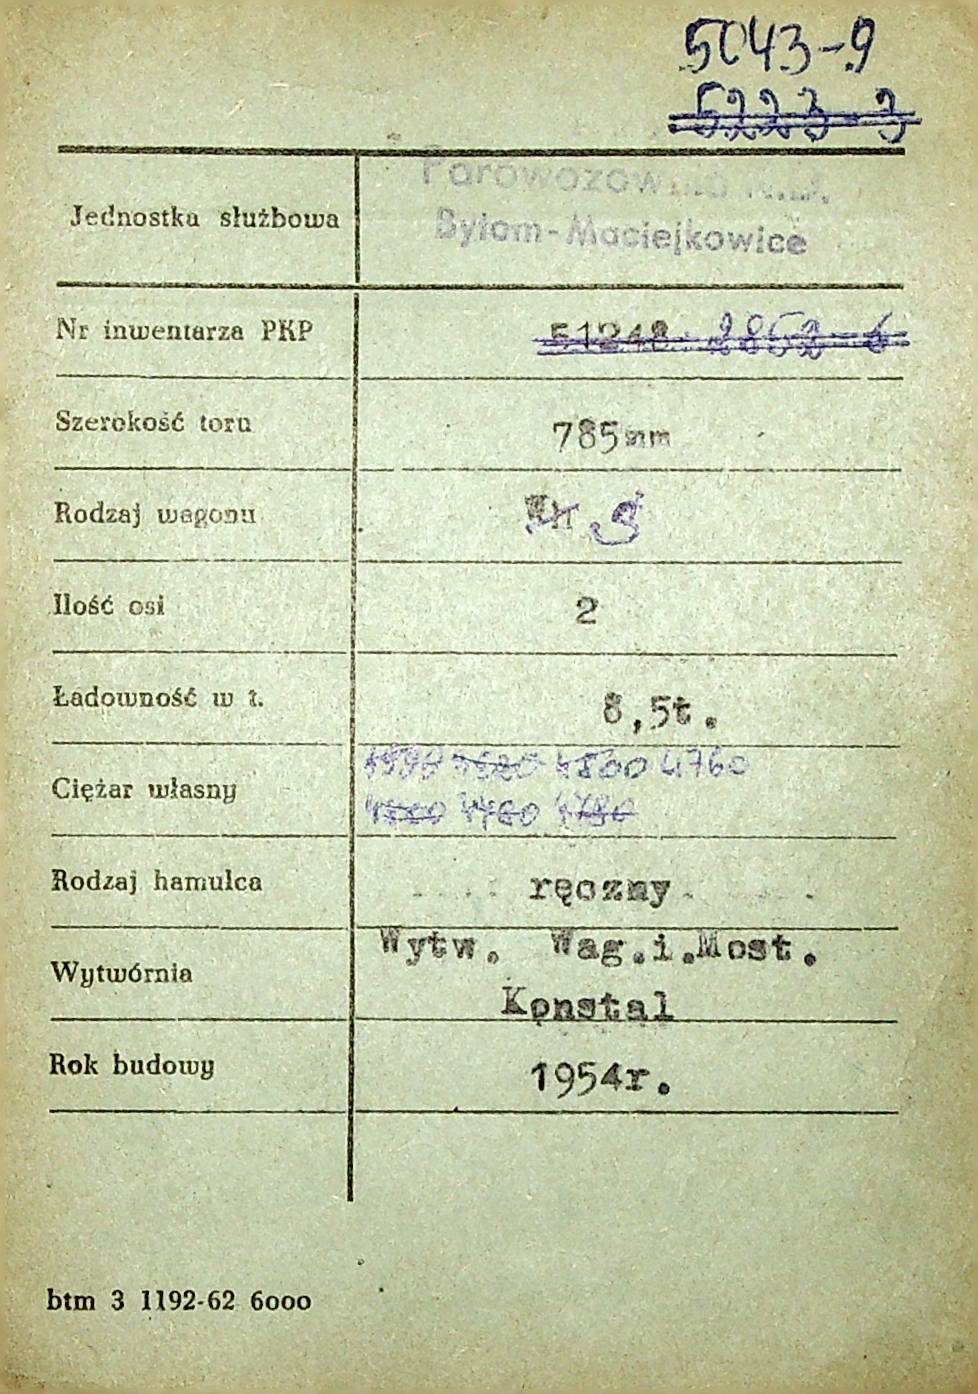 5043-9
5223-3
Jednostka służbowa
Parowozownia
Bytom-Maciejkowice
Nr inwentarza PKP 51248 2852-6
Szerokość toru 785mm
Rodzaj wagonu S
Ilość osi 2
Ładowność w t. 8,5t.
Ciężar własny
4800 4760
4780
Rodzaj hamulca ręczny
Wytwórnia
Wytw. Wag.i.Most.
Konstal
Rok budowy 1954r.
btm 3 1192-62 6000